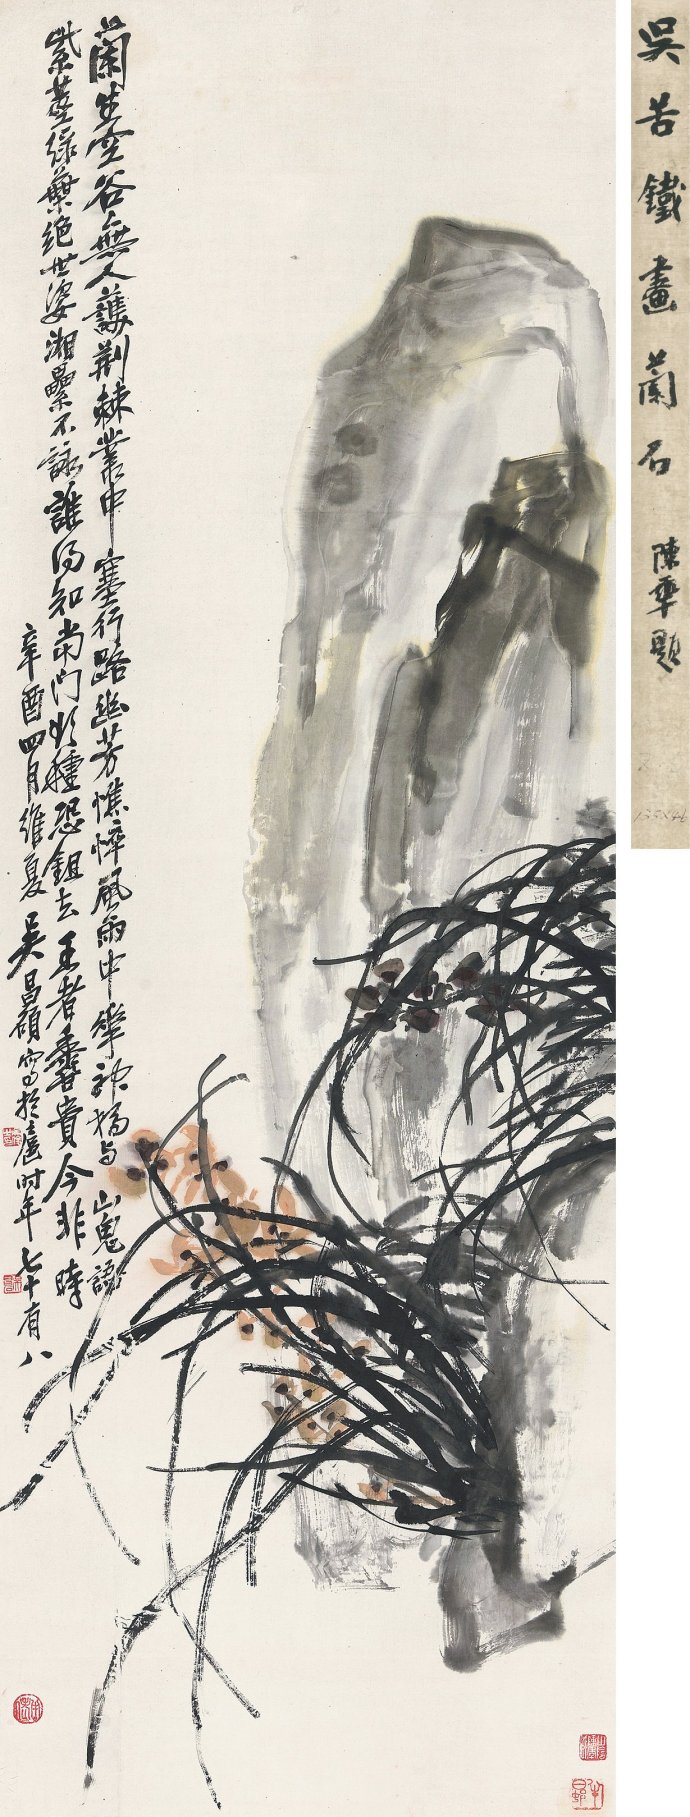 蘭生空谷無人護荆棘叢中塞行路幽芳憔悴風雨中華神猶与山鬼語
紫莖綠葉絶世姿湘纍不詠誰得知當門欲種恐鉏去王者香貴今非時
辛酉四月維夏吳昌碩寫於滬時年七十有八
吳苦鐵畫蘭石
陳年題